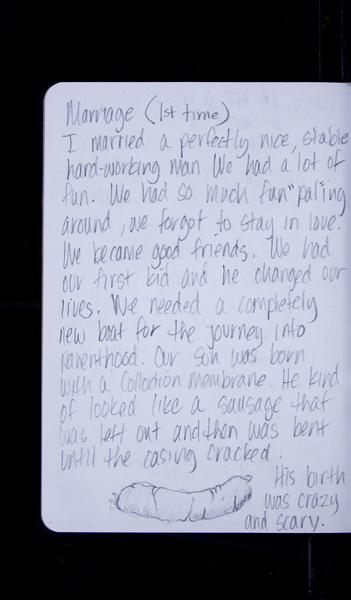 Marriage (1st time)
I married a perfectly nice, stable
hard-working man We had a lot of
fun. We had so much fun "pal"ing
around, we forgot to stay in love.
We became good friends. We had
our first kid and he changed our
lives. We needed a completely
new boat for the journey into
parenthood. Our son was born
with a Collodion membrane. He kind
of looked like a sausage that
was left out and then was bent
until the casing cracked.
His birth
was crazy
and scary.